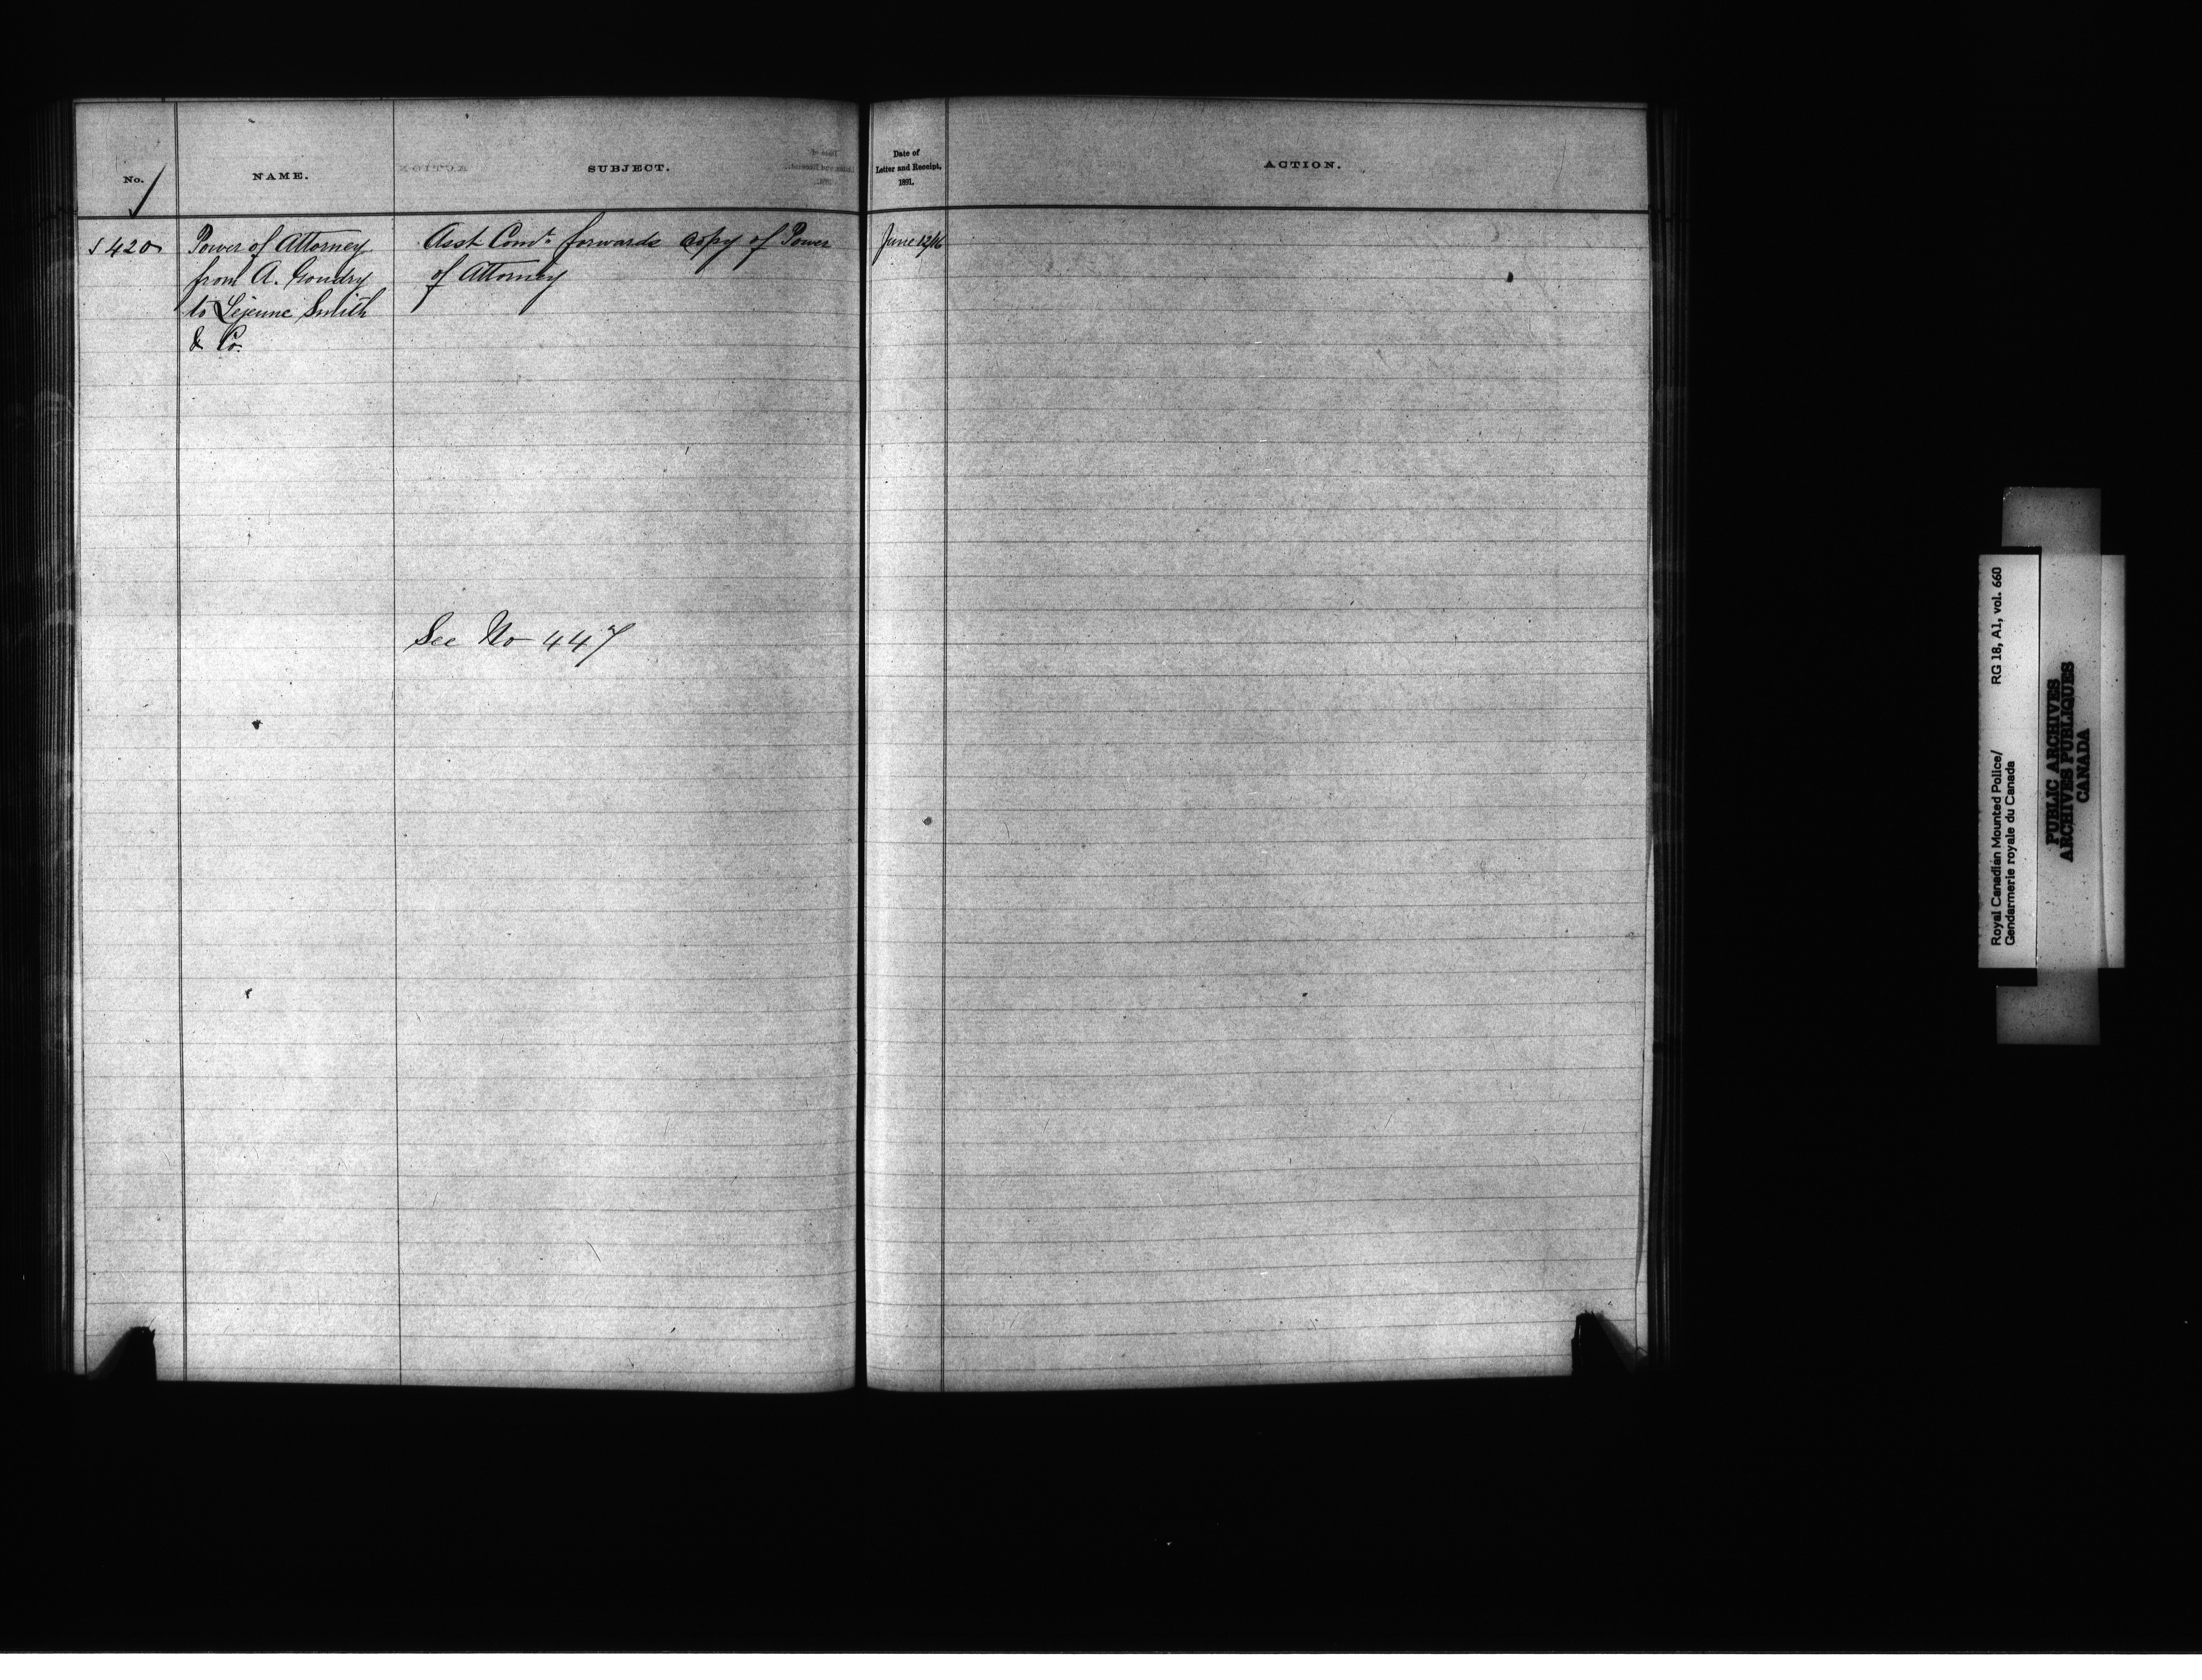 No.
NAME.
SUBJECT.
Date of
Letter and Receipt.
1891.
ACTION.
420
Power of Attorney
from A. Goudry
to Lejeune Smith
& Co.
Asst Comr. forwards copy of Power
of Attorney
June 12/16
See No 447
Royal Canadian Mounted Police/
Gendarmerie royale du Canada
RG 18, A1, vol. 660
PUBLIC ARCHIVES
ARCHIVES PUBLIQUES
CANADA